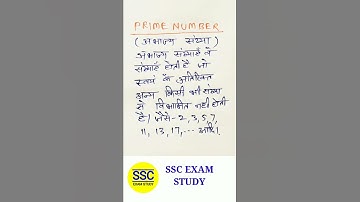 PRIME NUMBER
(अभाज्य संख्या)
अभाज्य संख्याएँ वे
संख्याएँ होती है जो
स्वयं के अतिरिक्त
अन्य किसी भी संख्या
से विभाजित नहीं होती
है। जैसे - 2, 3, 5, 7,
11, 13, 17, --- आदि।
SSC
EXAM STUDY
SSC EXAM
STUDY